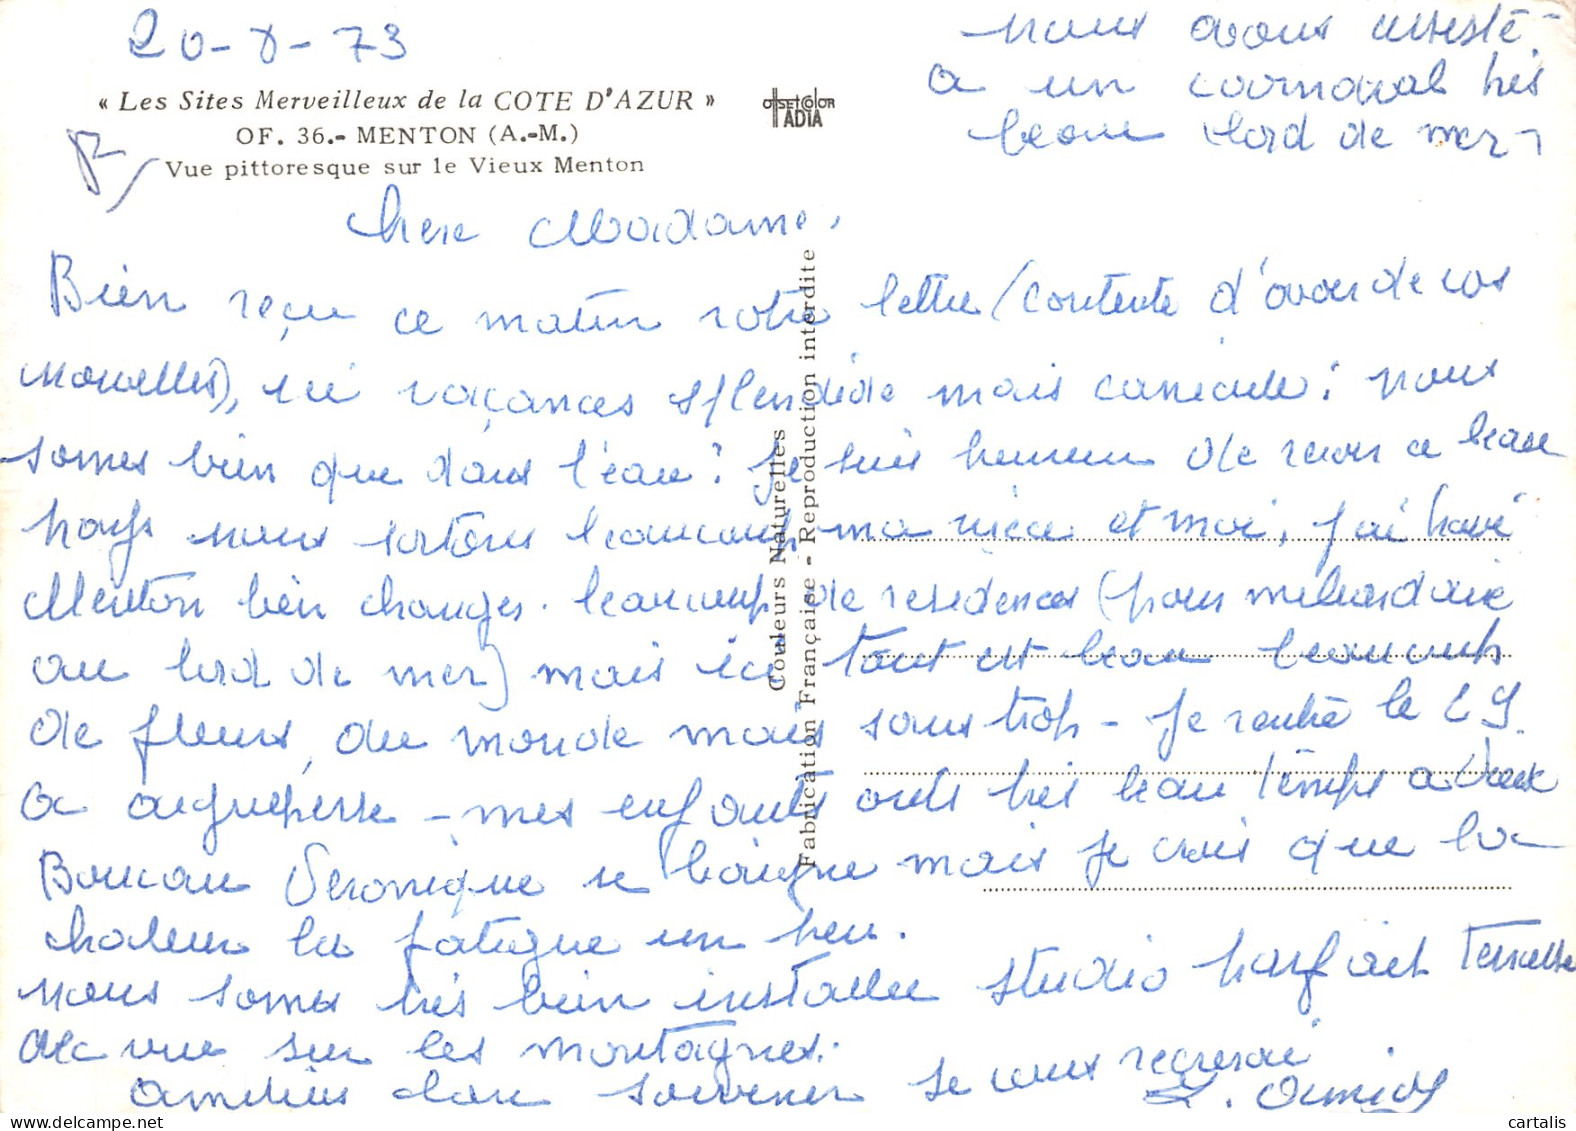 20-8-73
« Les Sites Merveilleux de la COTE D'AZUR »
OF. 36.- MENTON (A.-M.)
Vue pittoresque sur le Vieux Menton
OFFSETCOLOR
ADIA
nous avons assisté
a un carnaval très
beau bord de mer
chere Madame,
Bien reçu ce matin votre lettre (contente d'avoir de vos
nouvelles), ici vacances splendide mais canicule! nous
somes bien que dans l'eau! Je suis heureux de revoir ce beau
pays nous sortons beaucoup ma nièce et moi, j'ai trouvé
Menton bien changer. beaucoup de residences (pour milliardaire
au bord de mer) mais ici tout est beau beaucoup
de fleurs, du monde mais sans trop - Je rentre le 29
a aigueperse - mes enfants ont très beau temps a Vieux
Boucau Veronique se baigne mais je crois que la
chaleur la fatigue un peu.
nous somes très bien installer studio parfait Terrasse
avec vue sur les montagnes.
amitiés claire souvenir je vous
Couleurs Naturelles
Fabrication Française - Reproduction interdite
cartalis